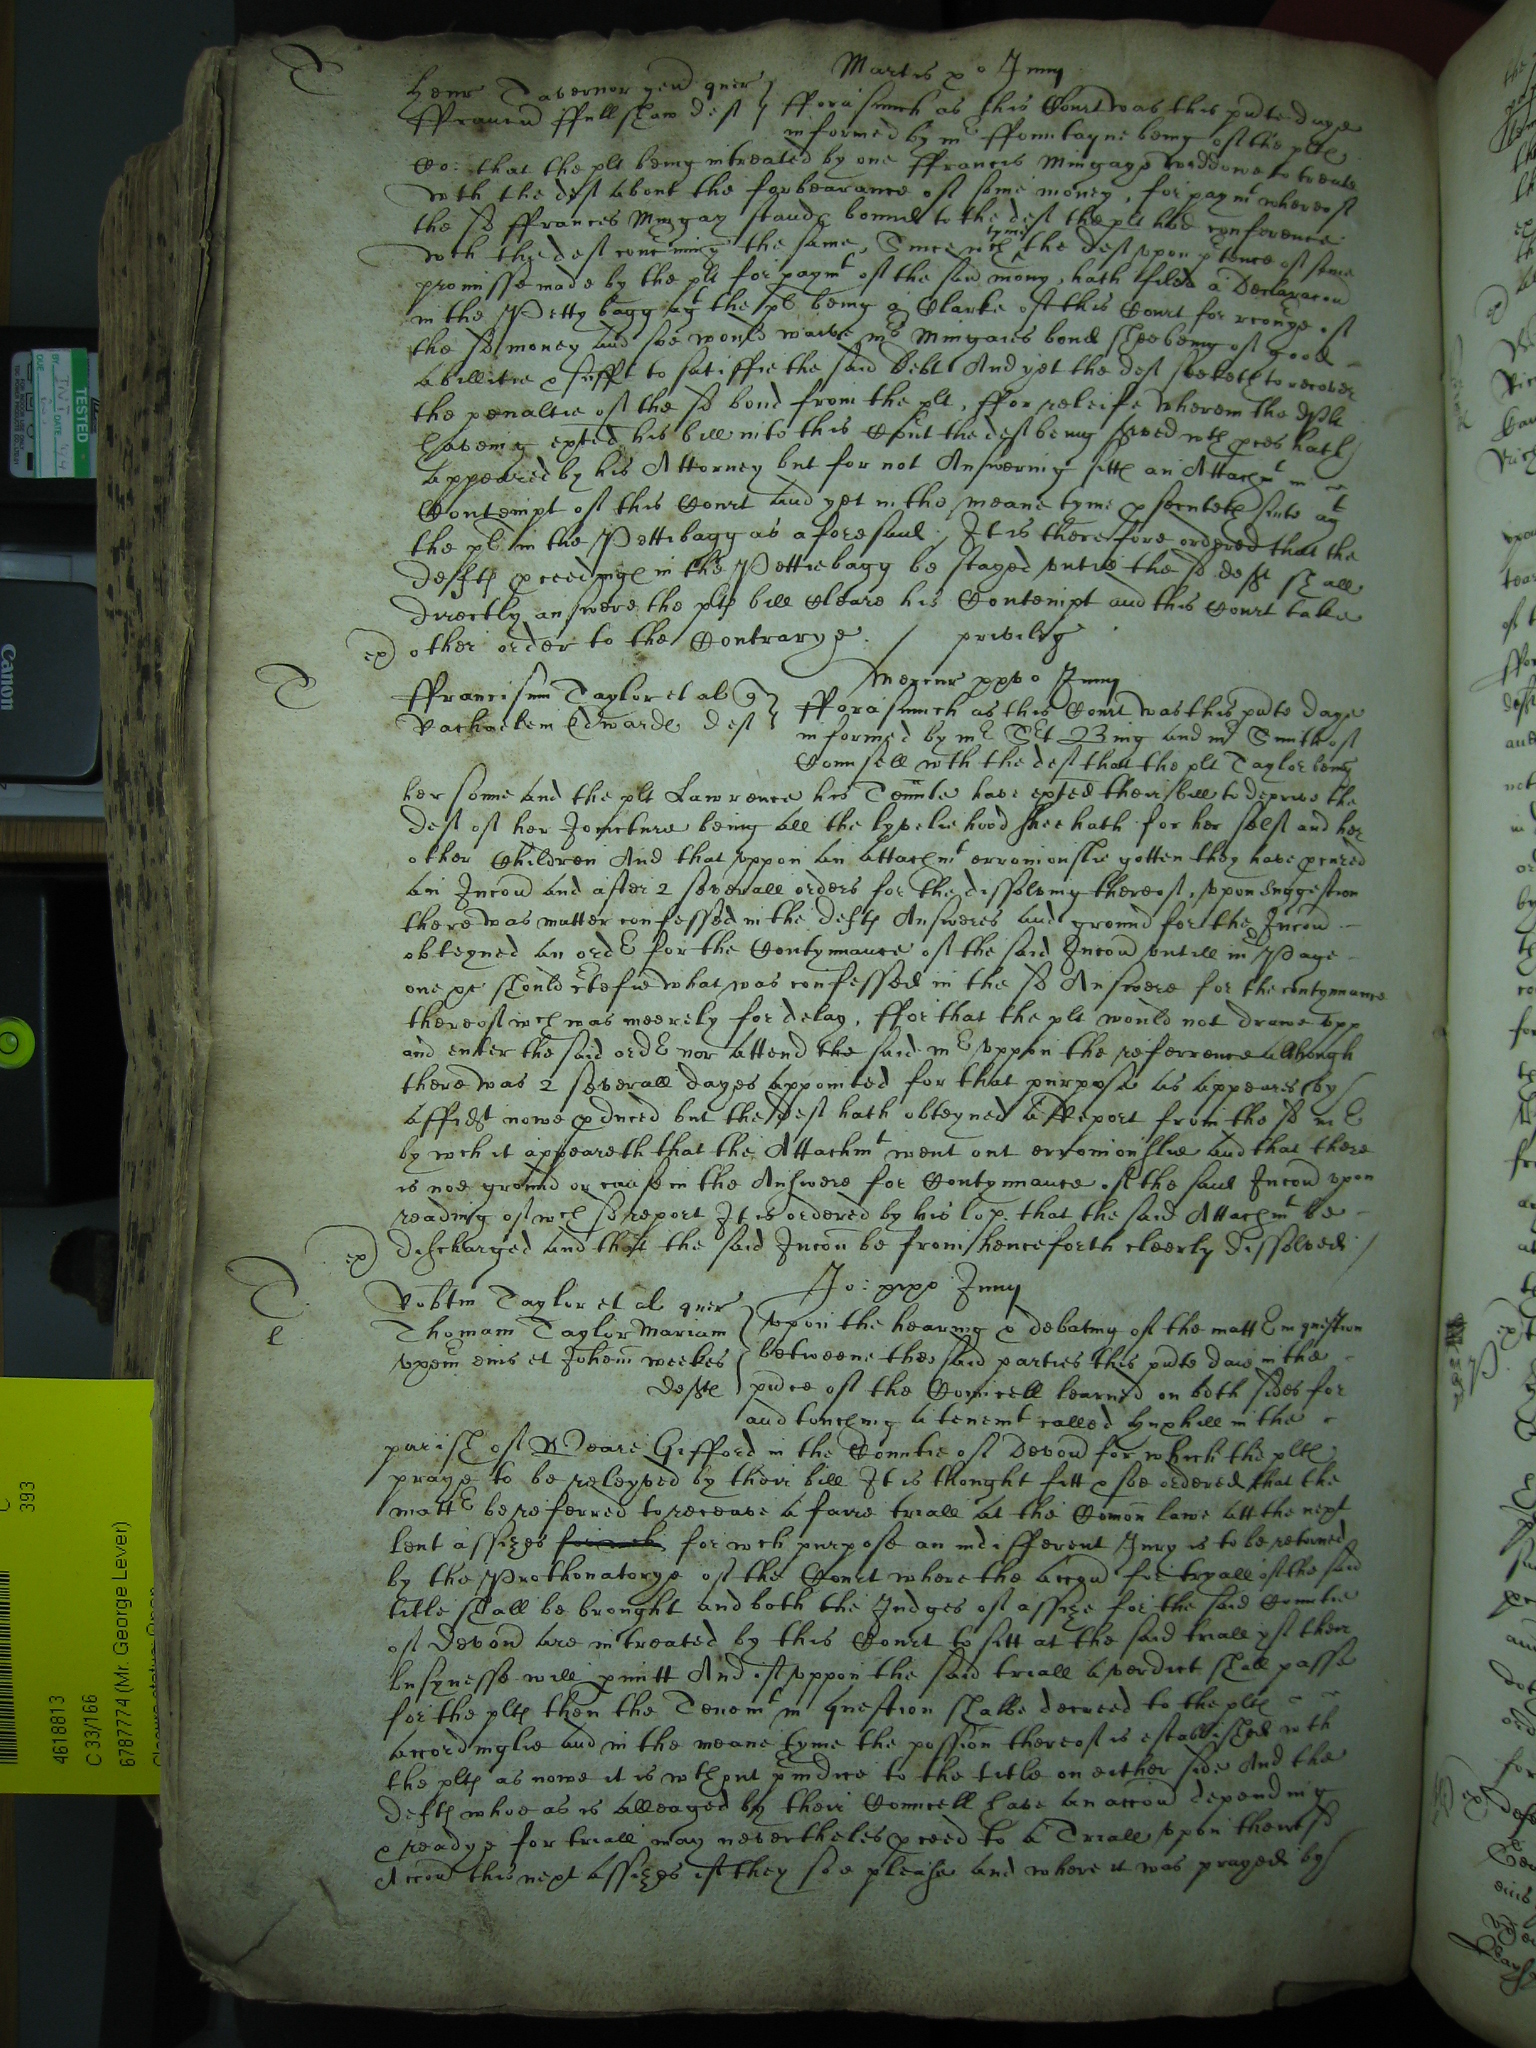 T
Martis po Junij
Henr Tavernor gen quer
Francū Fullshaw deft } fforasmuch as this Court was this pnte daye
informed by mr ffountayne being of the plts
Co: that the plt being intreated by one ffrances Mingaye widdowe to treate
wth the deft about the forbearance of some money, for paymt whereof
the sd ffrances Mingay stands bound to the deft the plt had conference
wth the deft concning the same, Since wch tyme the deft upon ptence of some
promisse made by the plt for paymt of the said mony, hath filed a Declaracon
in the Petty bagg agt the pl being a Clarke of this Court for recouye of
the sd money and soe would waive mrs Mingaies bond shee being of good
abillitie & sufft to satisfie the said Debt And yet the deft seeketh to recover
the penaltie of the sd bond from the plt, ffor releife wherein the plt
haveing exhted his bill into this Court the deft being served wth pces hath
appeared by his Attorney but for not Answering sitts an Attachmt in
Contempt of this Court and yet in the meane tyme psecuteth suite agt
the pl in the Pettibagg as aforesaid, It is therefore ordered that the
Defts pceedings in the Pettiebagg be stayed untill the sd deft shall
directly answere the plts bill cleare his Contempt and this Court take
ex) other order to the Contrarye. / priviledg
T
Mercur xxvo Junij
ffranciscum Taylor et al q
Rachaelem Edwards deft } fforasmuch as this Court was this pnte daye
informed by mr Sgt Bing and mr Smith of
Counsell wth the deft that the plt Taylor being
her sonne and the plt Lawrence his Tennte have exhted their bill to deprive the
Deft of her Joincture being all the lyvelie hood shee hath for her self and her
other Children And that uppon an attachmt erroniouslie gotten they have pcured
an Inconn and after 2 severall orders for the dissolving thereof, upon suggestion
there was matter confessed in the defts Answeres and ground for the Inconn
obteyned an ordr for the Contynuance of the said Inconn untill mr Page
one &c should ctefie what was confessed in the sd Answere for the contynnance
thereof wch was meerely for delay, ffor that the plt would not drawe upp
and enter the said ordr nor attend the said mr uppon the referrence although
there was 2 severall dayes appointed for that purpose as appeares by
affidt nowe pduced but the deft hath obteyned a Report from the sd mr
by wch it appeareth that the Attachmt went out erroniouslie and that there
is noe ground or cause in the Answere for Contynuance of the said Inconn upon
reading of wch sd report It is ordered by his lop. that the said Attachmt be
ex) discharged and that the said Inconn be from henceforth cleerly dissolved /
T
e
Jo: Junij
Robtm Taylor et al quer
Thomam Taylor Mariam
uxem eius et Johem weekes
defts } Upon the hearing & debating of the mattr in question
betweene the said parties this pnte daie in the
pnce of the Councell learned on both sides for
and touching a tenemt called Huxhill in the
parish of Weare Gifford in the Countie of Devon for which the plts
praye to be releyved by their bill It is thought fitt & soe ordered that the
mattr be referred to receave a faire triall at the Comon lawe att the next
lent assizes for wch purpose an indifferent Jury is to be retorned
by the Prothonatorye of the Court where the accon for tryall of the said
title shall be brought and both the Judges of assize for the said Countie
of Devon are intreated by this Court to sitt at the said triall yf their
busynesse will pmitt And if uppon the said triall a verdict shall passe
for the plts then the Tenemt in question shalbe decreed to the plts
accordinglie and in the meane tyme the possion thereof is established wth
the plts as nowe it is wthout piudice to the title on either side And the
Defts whoe as is alleaged by their Councell have an accon depending
& readye for triall may nevertheles pceed to a Triall upon their sd
Accon this next assizes if they soe please and where it was prayed by
TESTED
Canon
393
4618813
C 33/166
6787774 (Mr. George Lever)